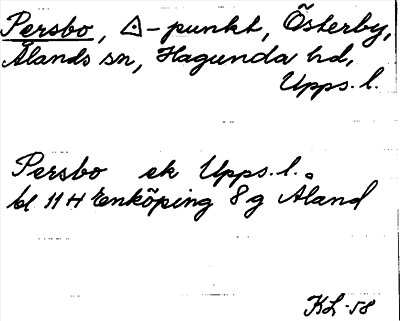 Persbo, △-punkt, Österby,
Ålands sn, Hagunda hd,
Upps. l.
Persbo ek Upps. l.
bl 11 H Enköping 8 g Åland
KL-58